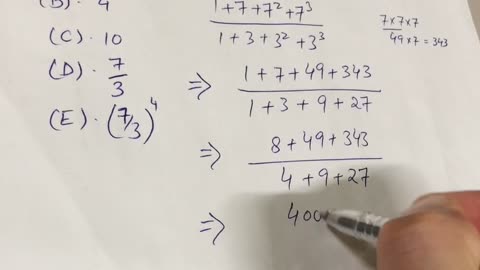 (B). 4
(C). 10
(D). 7/3
(E). (7/3)^4
1+7+7²+7³
1+3+3²+3³
7×7×7
49×7 = 343
⇒ 1+7+49+343
1+3+9+27
⇒ 8+49+343
4+9+27
⇒ 400